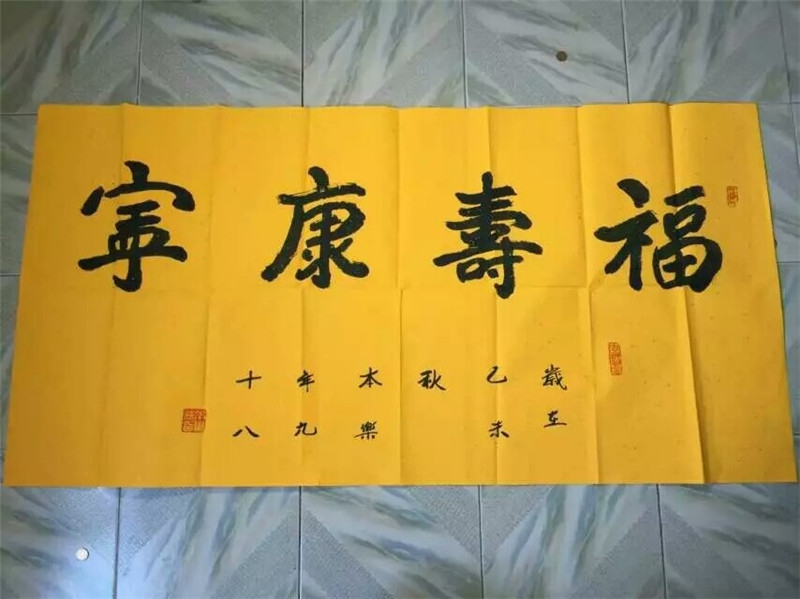 福壽康寧
歲在
乙未
秋
本樂
年九
十八